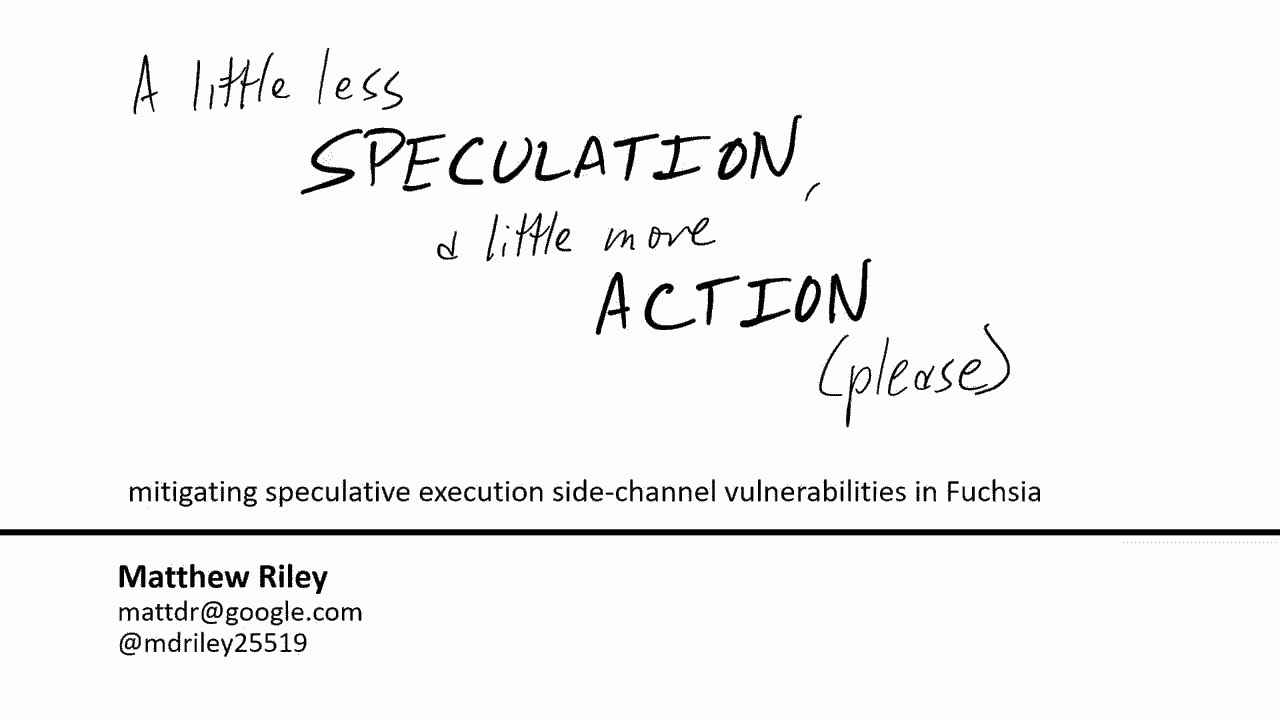 A little less
SPECULATION,
a little more
ACTION
(please)
mitigating speculative execution side-channel vulnerabilities in Fuchsia
Matthew Riley
mattdr@google.com
@mdriley25519